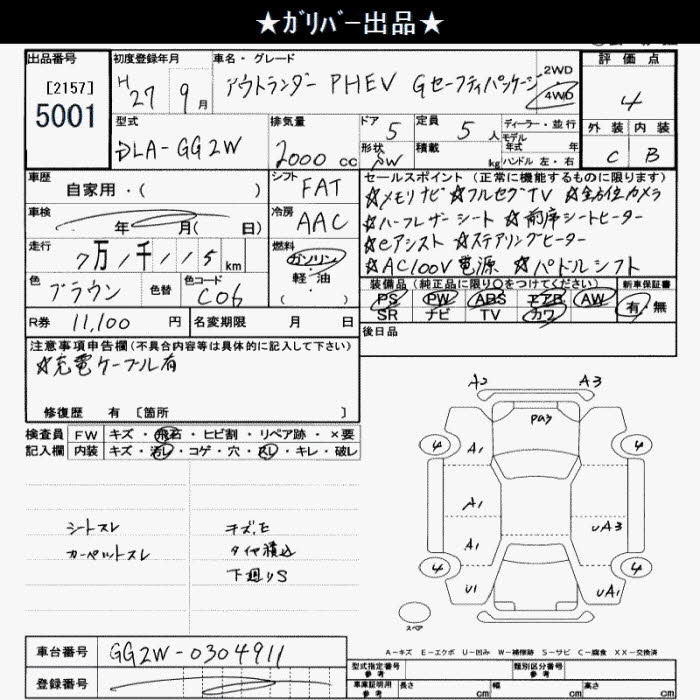 ★ｶﾞﾘﾊﾞｰ出品★
出品番号
[2157]
5001
初度登録年月
H27年 9月
車名・グレード
アウトランダー PHEV Gセーフティパッケージ
2WD
4WD
評価点
4
型式
DLA-GG2W
排気量
2000 cc
ドア 5
形状 SW
定員 5 人
積載 kg
ディーラー・並行
モデル
年式 年
ハンドル 左・右
外装 内装
C B
車歴
自家用・( )
シフト FAT
車検
年 月( 日)
冷房 AAC
走行
7万1千115km
燃料
ガソリン
軽・油
( )
色
ブラウン
色替
色コード
C06
R券 11,100 円
名変期限 月 日
セールスポイント (正常に機能するものに限ります)
☆メモリナビ☆フルセグTV ☆全方位カメラ
☆ハーフレザーシート ☆前席シートヒーター
☆eアシスト ☆ステアリングヒーター
☆AC100V電源 ☆パドルシフト
装備品 (純正品に限り○をつけてください)
新車保証書
PS PW ABS エアB AW
SR ナビ TV カワ
有・無
後日品
注意事項申告欄(不具合内容等は具体的に記入して下さい)
☆充電ケーブル有
修復歴 有 〔箇所 〕
検査員
記入欄
FW キズ・飛石・ヒビ割・リペア跡・×要
内装 キズ・汚レ・コゲ・穴・スレ・キレ・破レ
シートスレ
カーペットスレ
キズ、E
タイヤ積込
下廻りS
A2 A3
Pa3
4 4
A1
A1 UA3
A1
4 4
U1 UA1
スペア
A-キズ E-エクボ U-凹み W-補修跡 S-サビ C-腐食 XX-交換済
車台番号 GG2W-0304911
登録番号
型式指定番号
参考
類別区分番号
参考
車庫証明用
参考
長さ cm
幅 cm
高さ cm